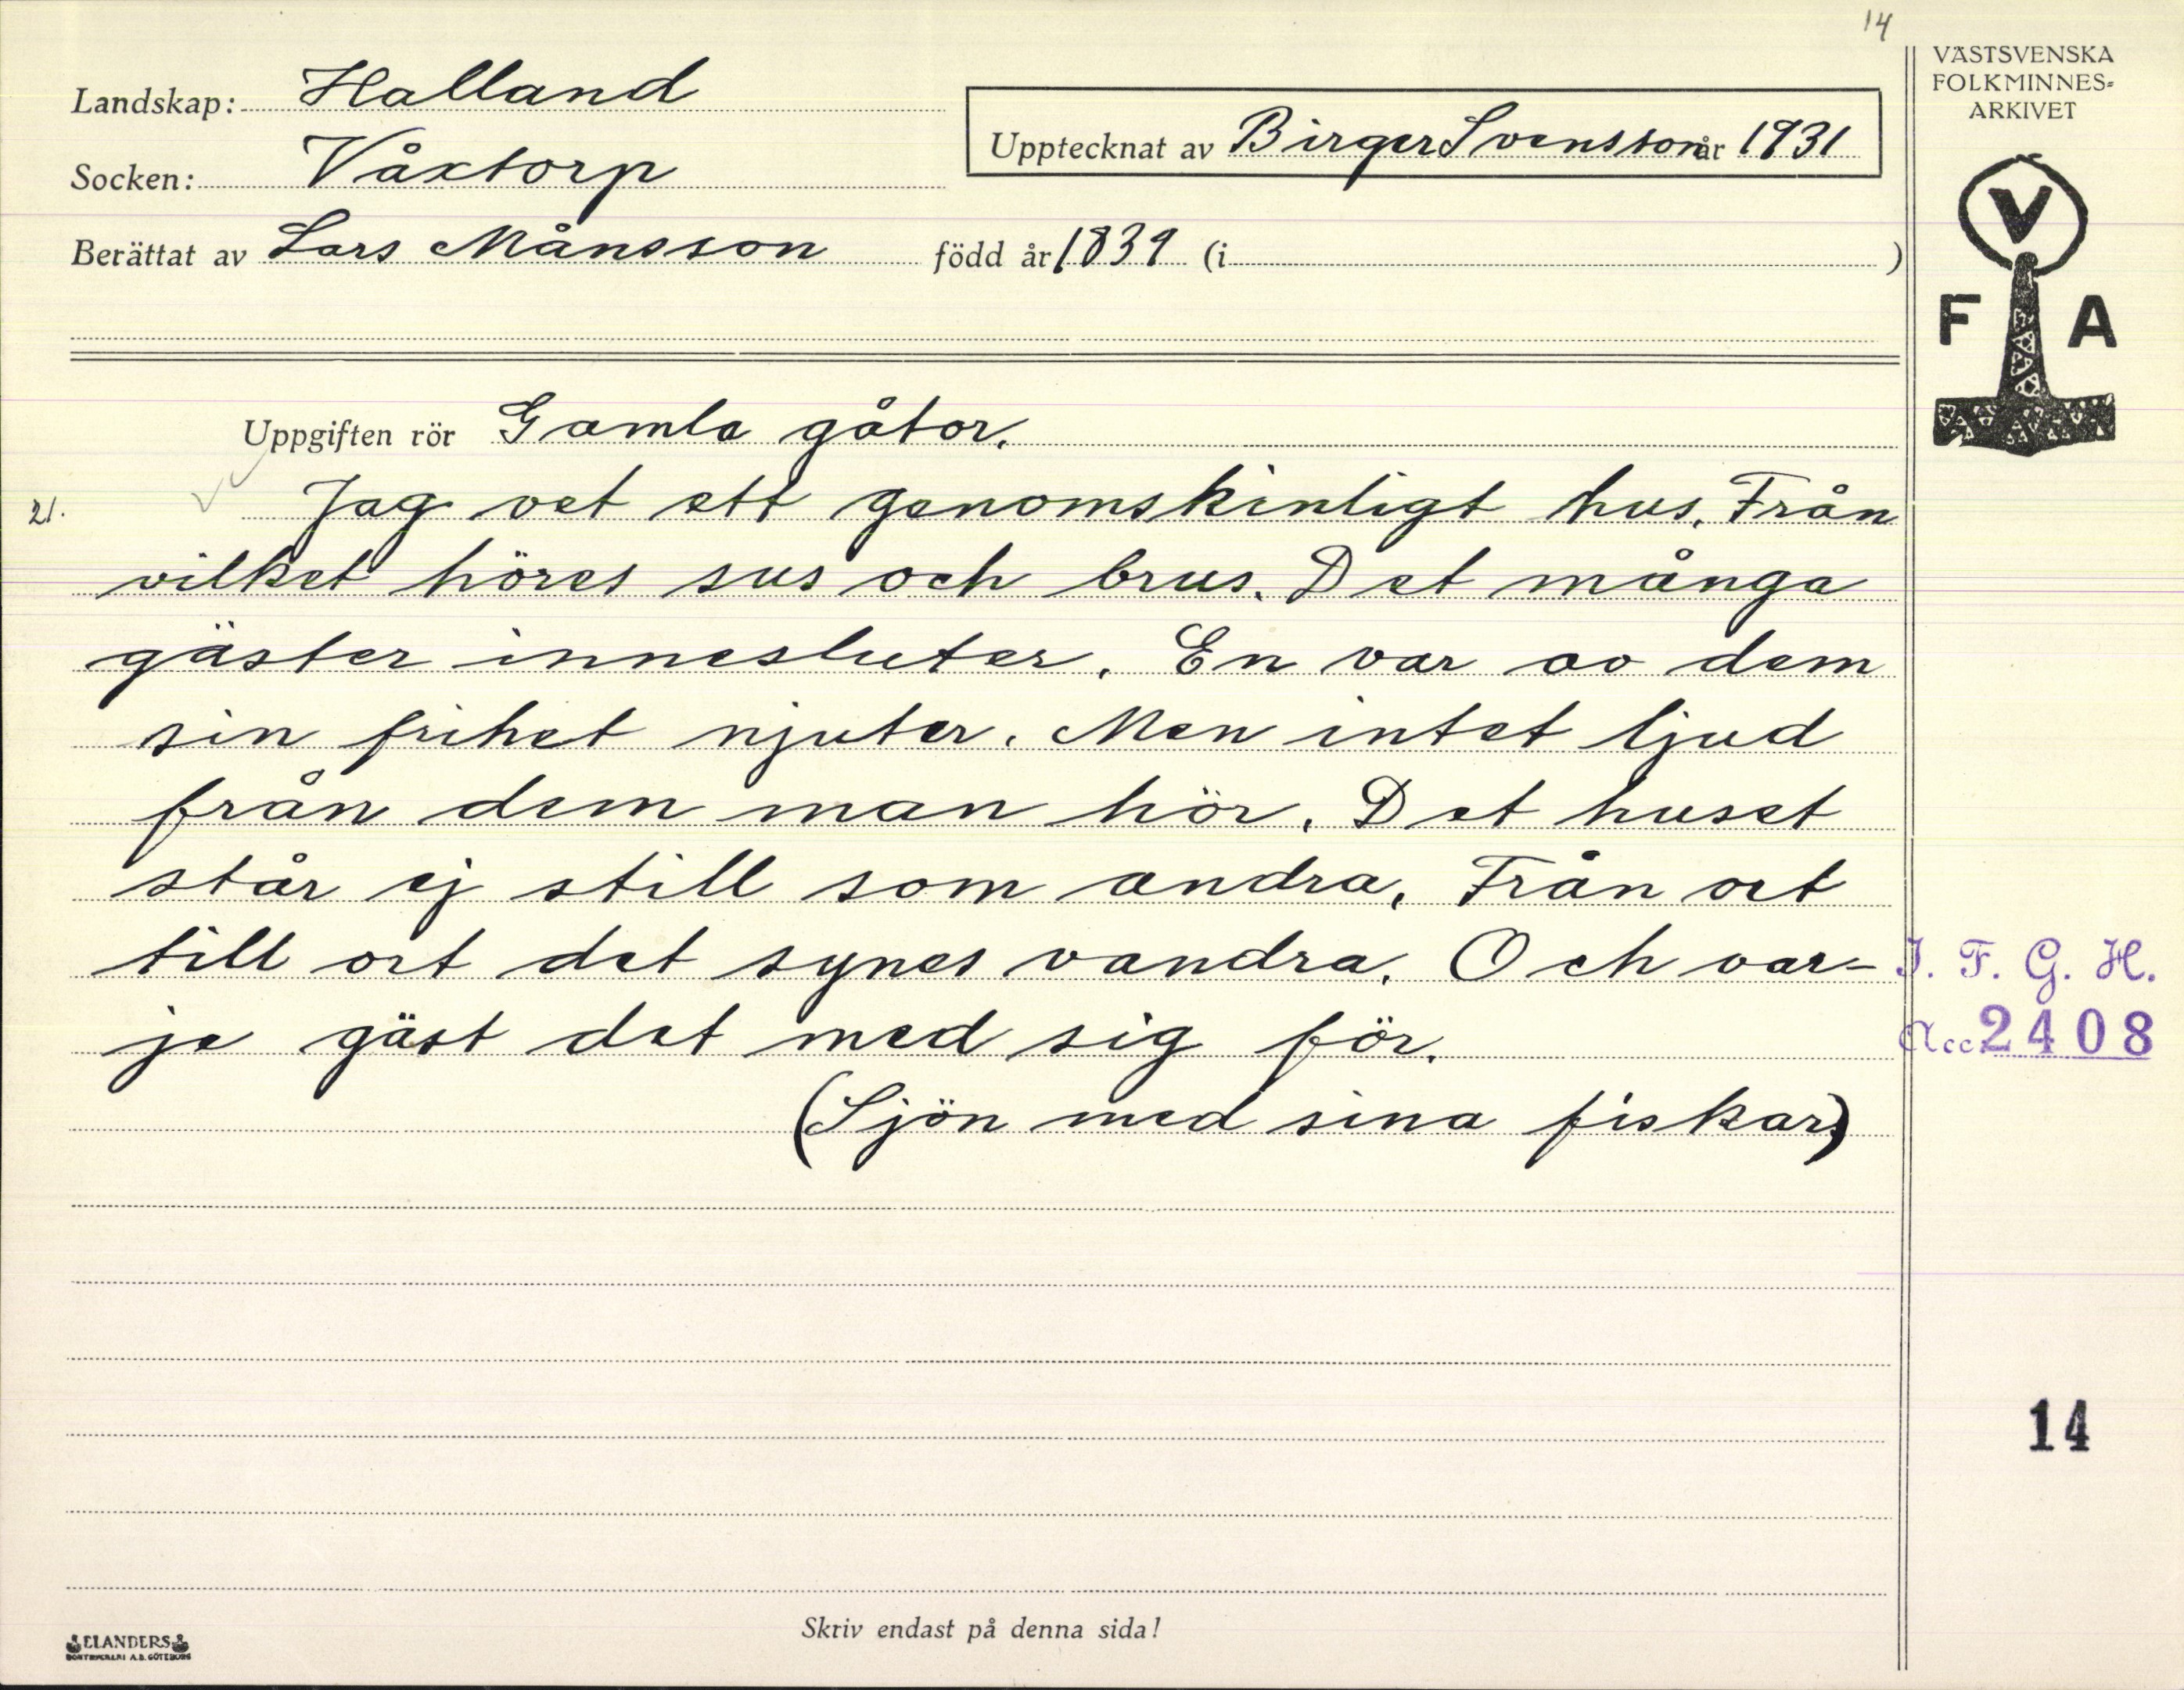 14
VÄSTSVENSKA
FOLKMINNES-
ARKIVET
Landskap: Halland
Upptecknat av Birger Svensson år 1931
Socken: Våxtorp
Berättat av Lars Månsson född år 1839 (i )
V
F A
Uppgiften rör Gamla gåtor.
21. Jag vet ett genomskinligt hus. Från
vilket höres sus och brus. Det många
gäster innesluter. En var av dem
sin frihet njuter. Men intet ljud
från dem man hör. Det huset
står ej still som andra. Från ort
till ort det synes vandra. Och var-
je gäst det med sig för.
(Sjön med sina fiskar.)
I. F. G. H.
Acc. 2408
14
Skriv endast på denna sida!
ELANDERS
BOKTRYCKERI A.B. GÖTEBORG